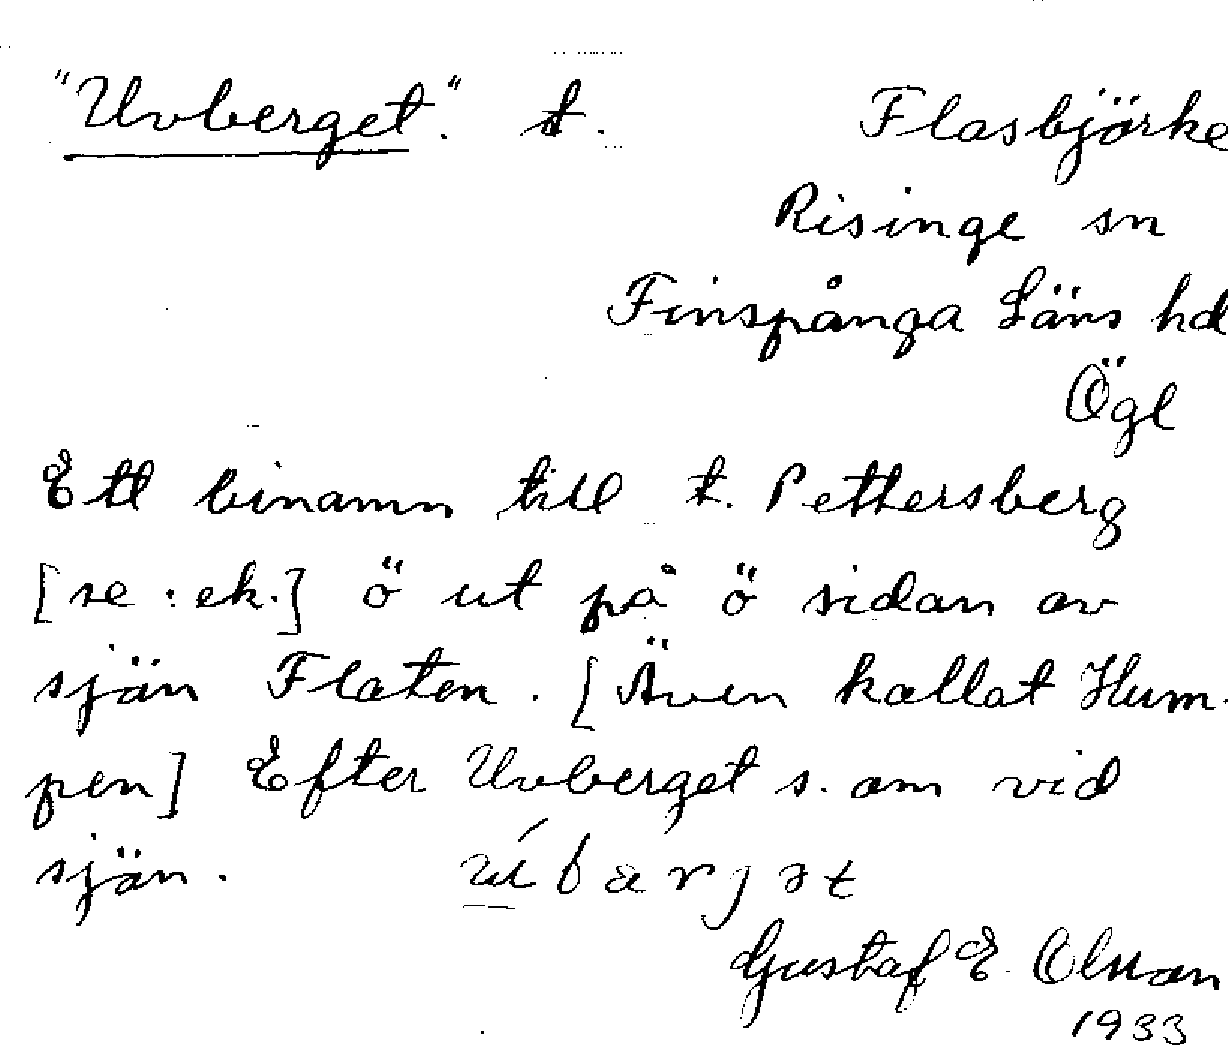 "Uvberget". t. Flasbjörke
Risinge sn
Finspånga Läns hd
Ögl
Ett binamn till t. Pettersberg
[se: ek.] ö ut på ö sidan av
sjön Flaten. [Även kallat Hum-
pen] Efter Uvberget s. om vid
sjön. úbærjət
Gustaf E. Olsson
1933